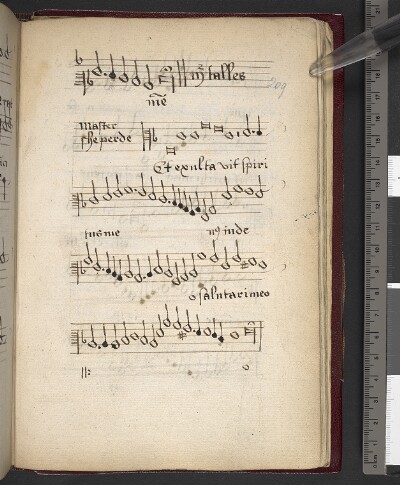 mr talles
me
Master
sheperde
Et exulta vit spiri
tus me us in de
o salutari meo